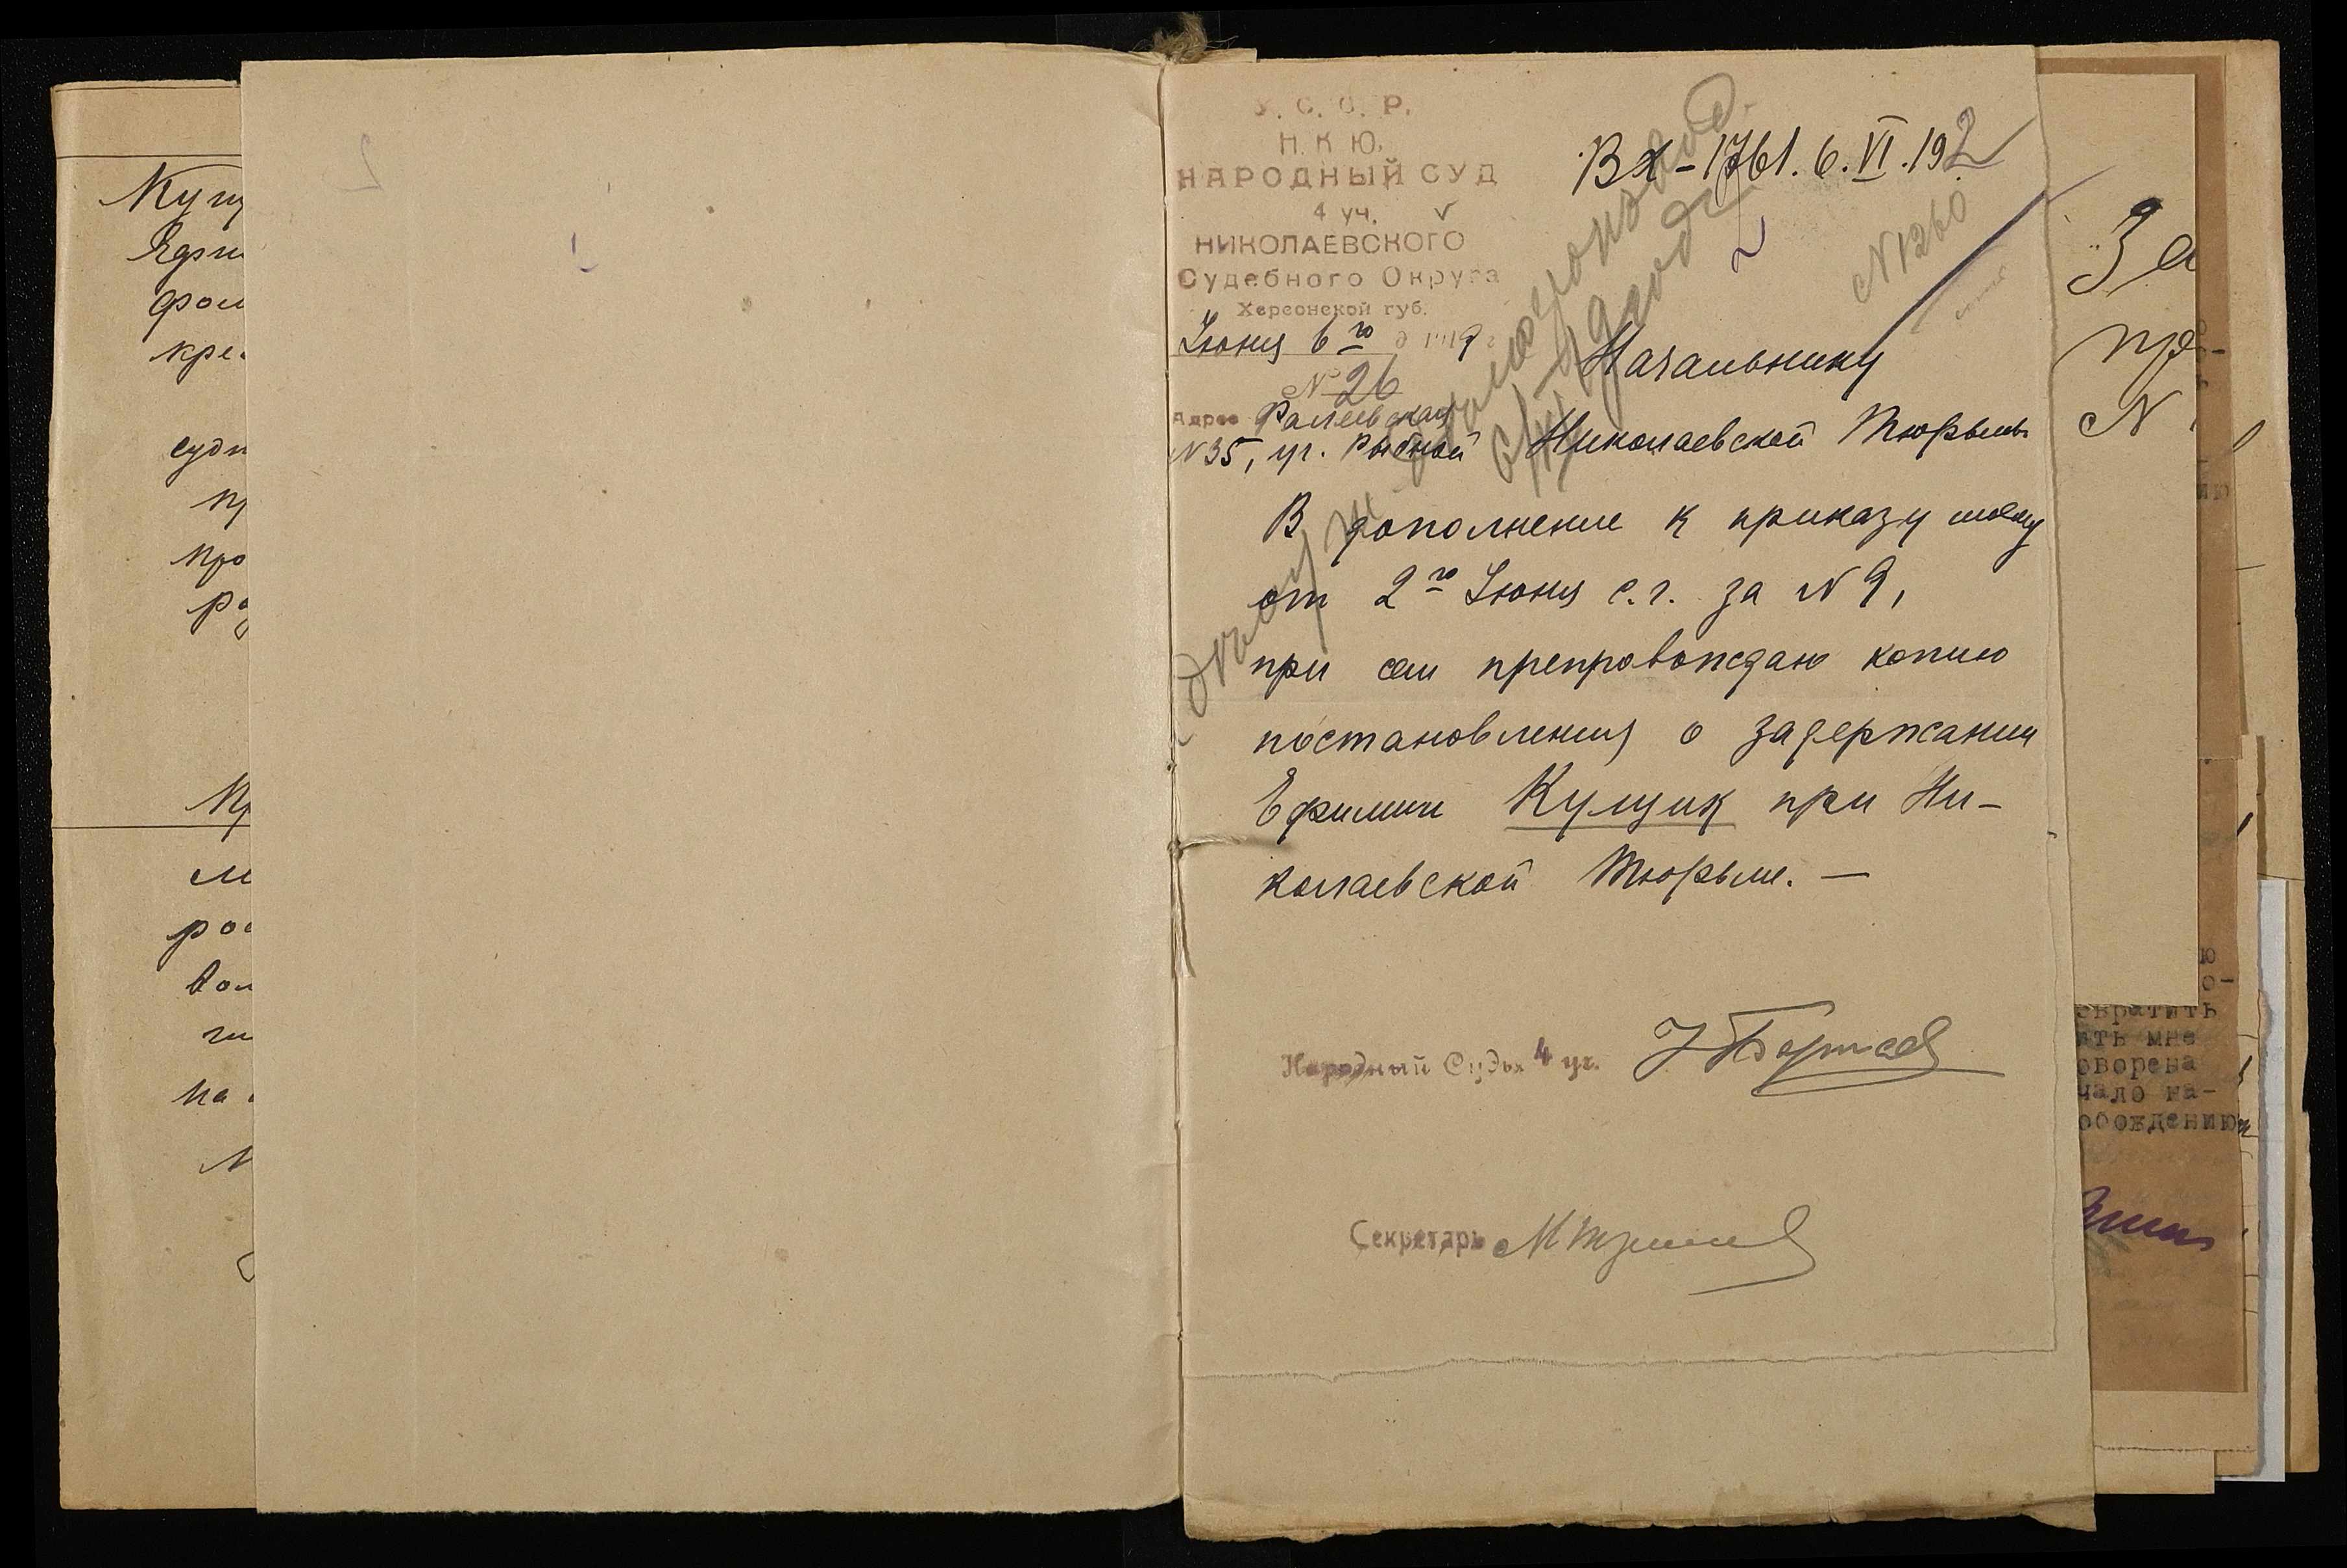 Кущ
Ефи
фом
кре
судн
пр
про
ро
Пр
ми
рос
вол
ги
на
У. С. С. Р.
Н. К. Ю.
НАРОДНЫЙ СУД
4 уч.
НИКОЛАЕВСКОГО
Судебного Округа
Херсонской губ.
Июня 6 го д
№ 26
Адрес Фалеевская
№ 35, уг. Рыбной
Вх - 1761. 6. VI. 192
№ 1260
Начальнику
Николаевской Тюрьмы
В дополнение к приказу моему
от 2 го Июня с.г. за № 9,
при сем препровождаю копию
постановления о задержании
Ефимии Кущик при Ни-
колаевской Тюрьме. —
Народный Судья 4 уч.
Секретарь
За
пр
№
ю
о-
звратить
ить мне
оворена
чало на-
обождению